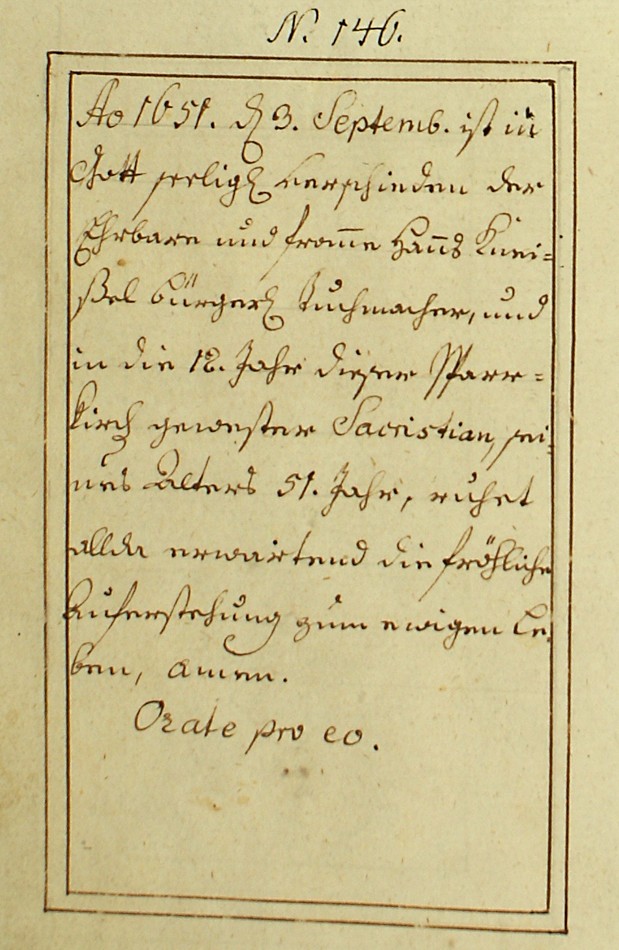 N. 146.
Ao 1651. den 3. Septemb. ist in
Gott seelig verschieden der
Ehrbare und from̄e Han̄s Knei=
ßel bürgerl Tuchmacher, und
in die 12. Jahr dieser Pfarr=
kirch gewester Sacristian, sei=
nes Alters 51. Jahr, ruhet
allda erwartend die fröhliche
Auferstehung zum ewigen Le=
ben, amen.
Orate pro eo.